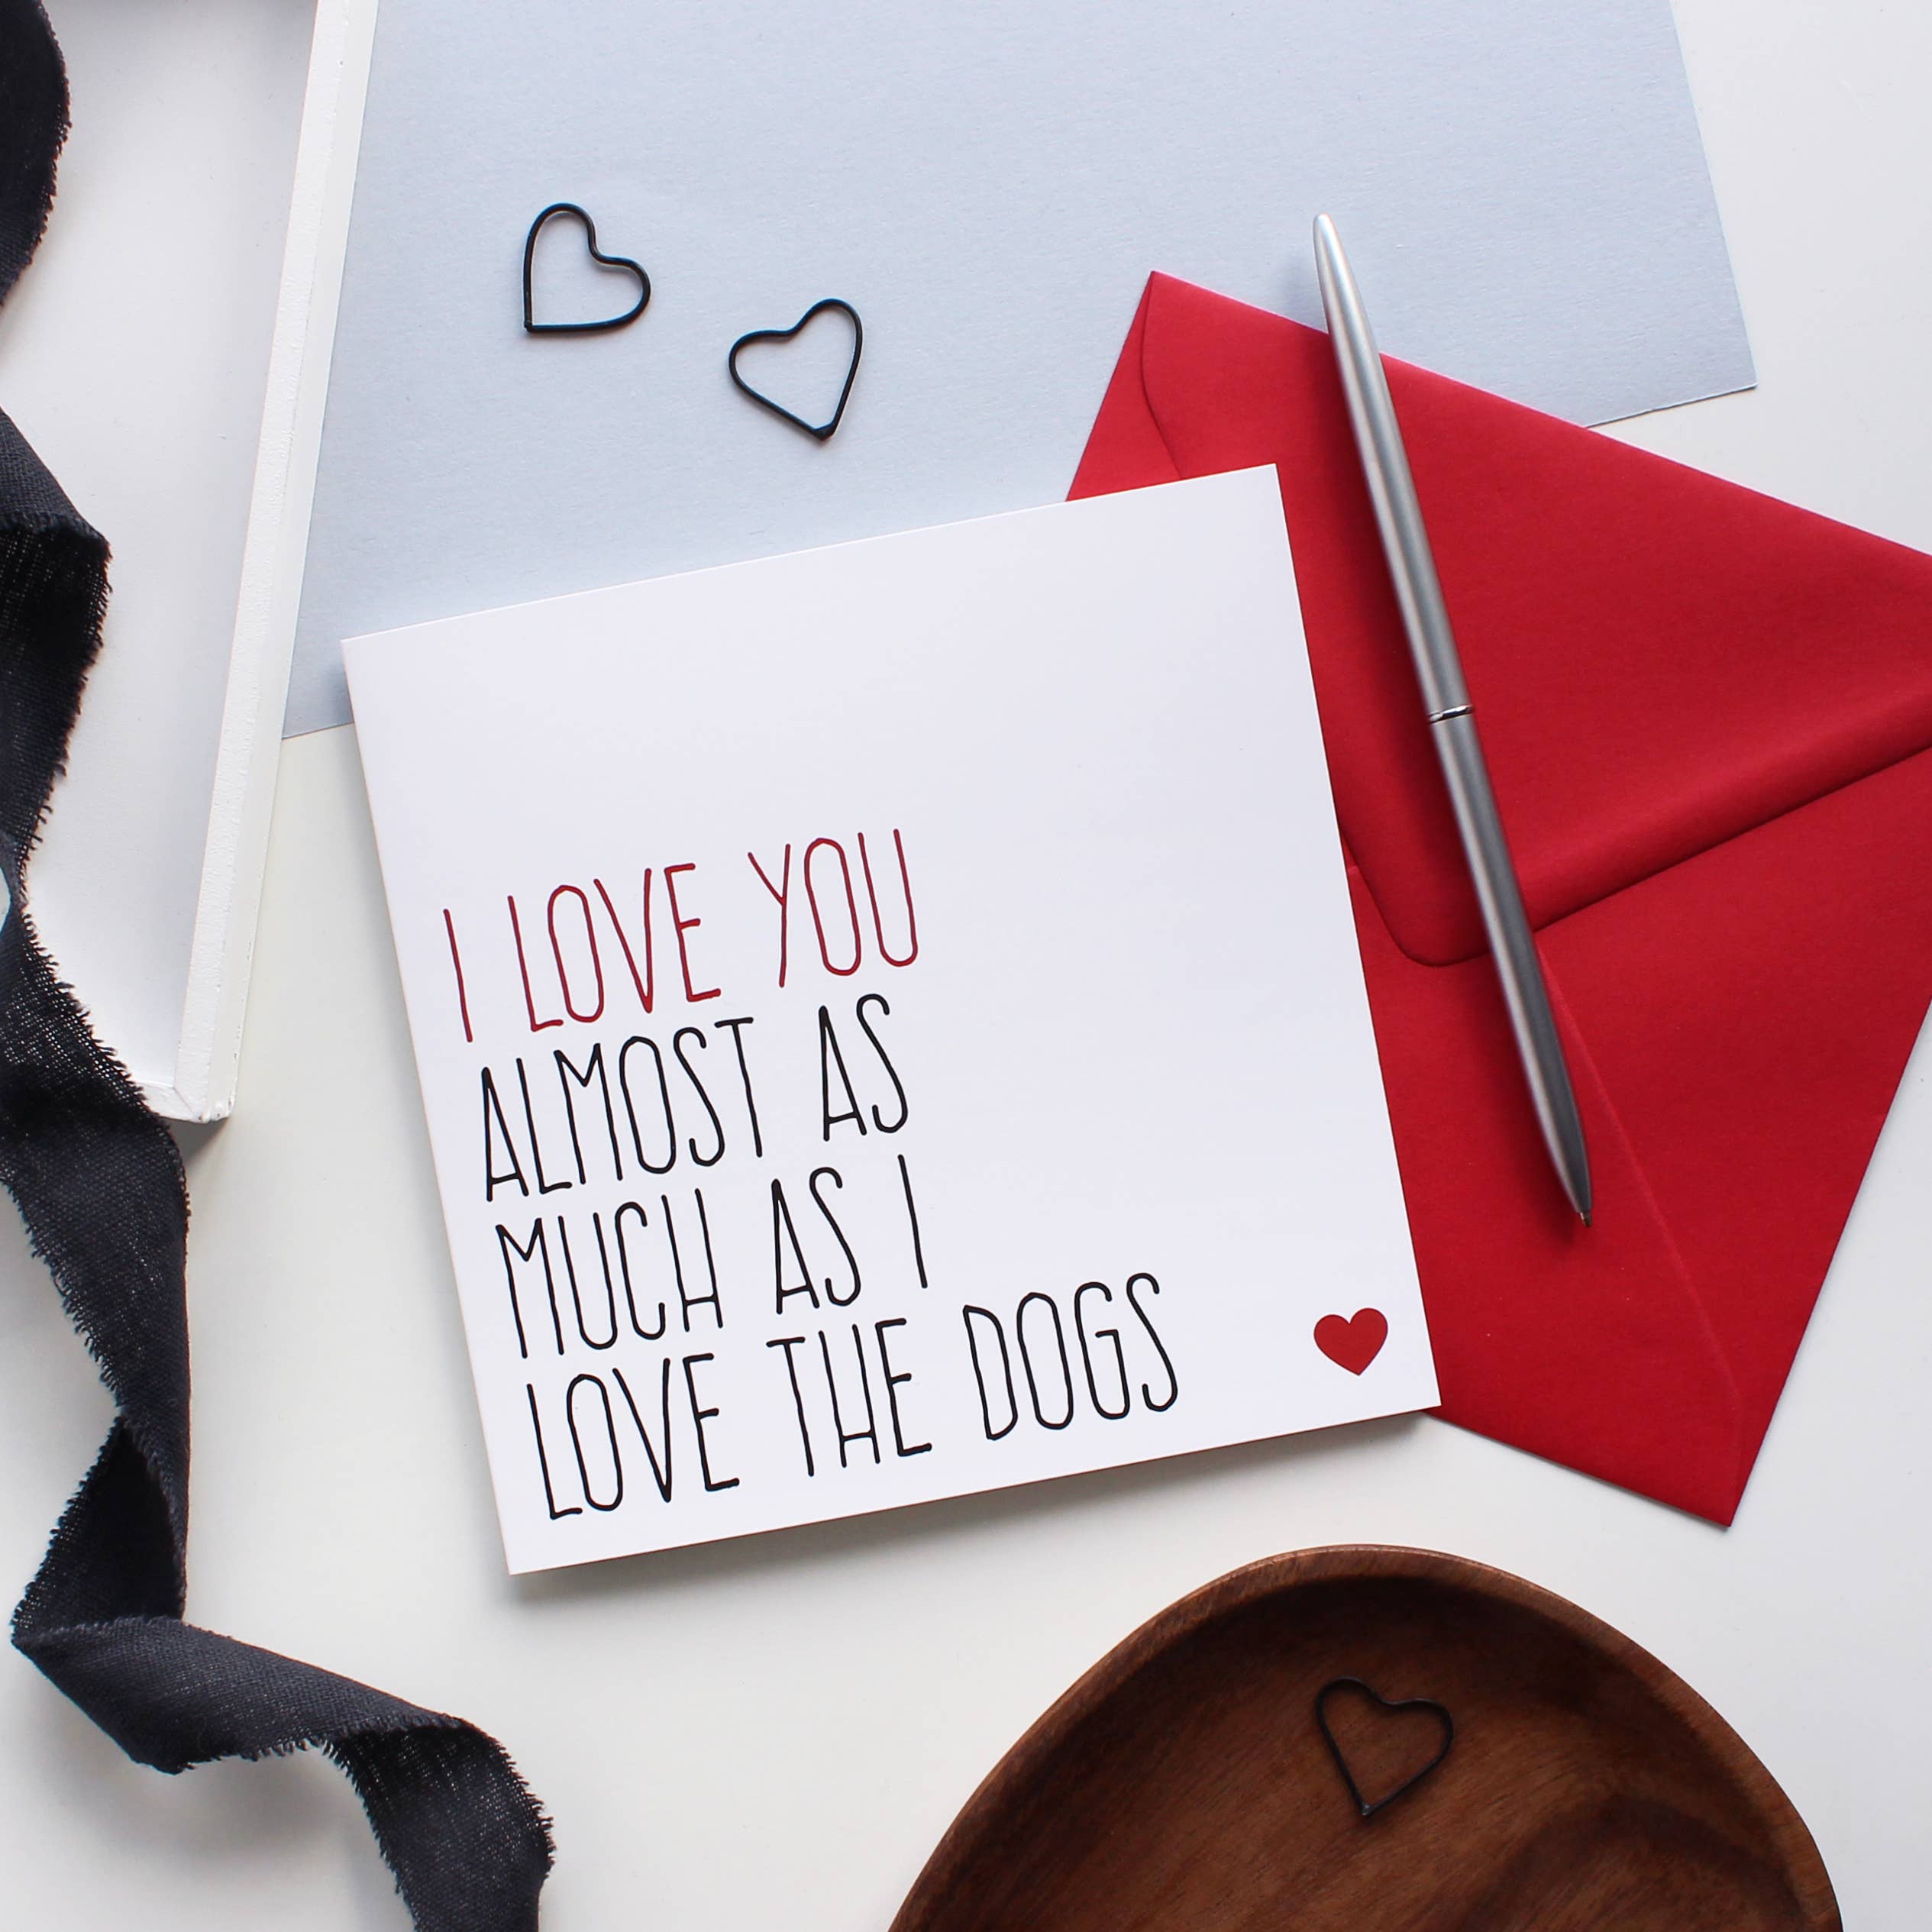 I LOVE YOU
ALMOST AS
MUCH AS I
LOVE THE DOGS